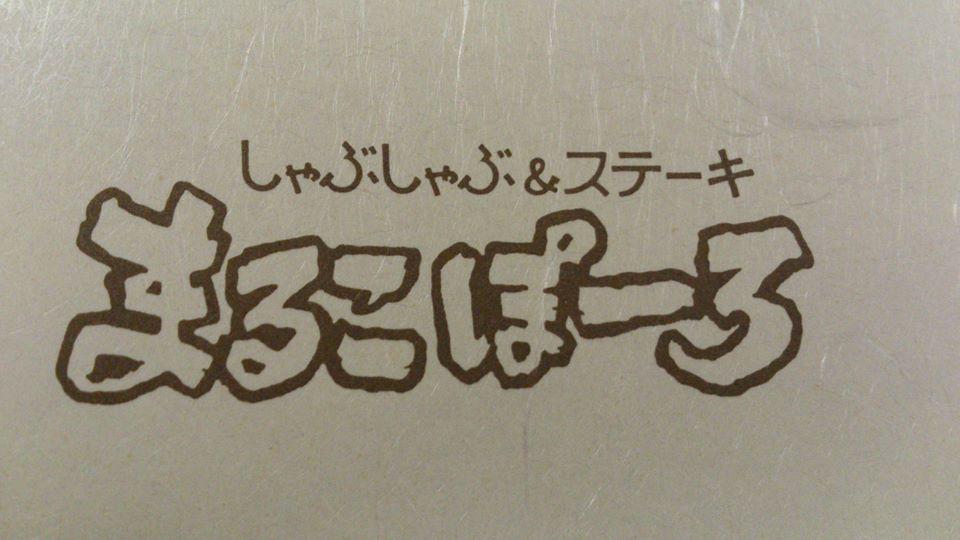 しゃぶしゃぶ&ステーキ
まるこぽーろ